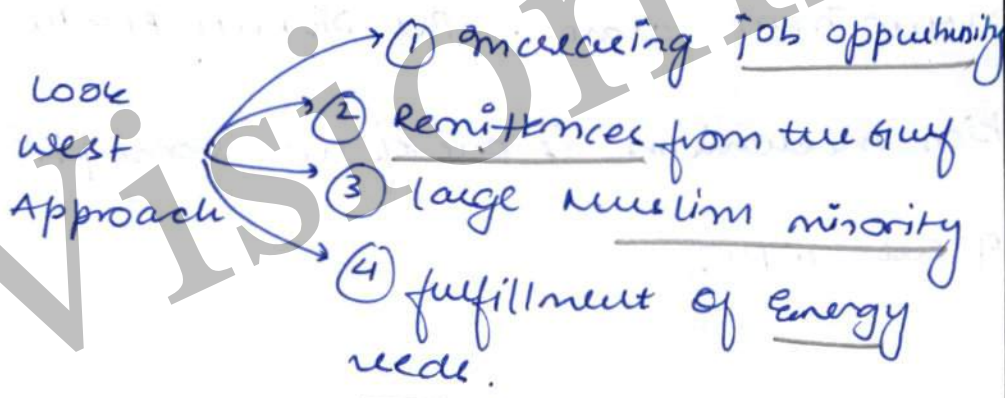 Look
West
Approach
① Increasing job oppurtunity
② Remittences from the Gulf
③ large Muslim minority
④ fulfillment of Energy
needs.
Vision